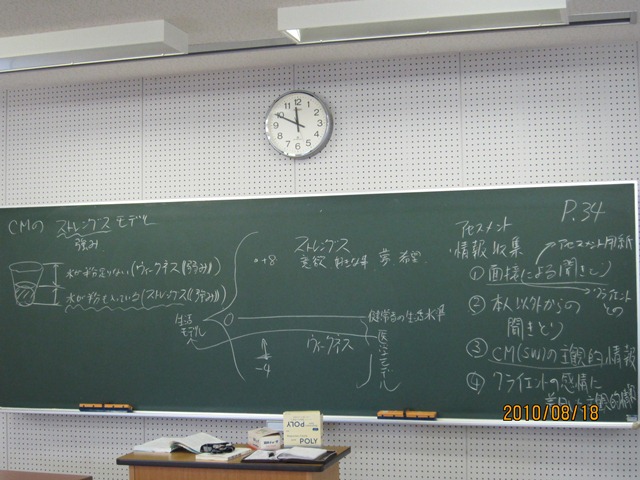 CMの ストレングス モデル
強み
水が半分足りない(ウィークネス《弱み》)
水が半分も入っている(ストレングス《強み》)
生活
モデル
ストレングス
+8
意欲 好きな事 夢 希望
健常者の生活水準
0
ウィークネス
-4
医学モデル
P.34
アセスメント
情報収集
アセスメント用紙
① 面接による聞きとり
クライエント
との
② 本人以外からの
聞きとり
③ CM(SW)の主観的情報
④ クライエントの感情に
主観的情報
12
1
2
3
4
5
6
7
8
9
10
11
POLY
POLY
2010/08/18